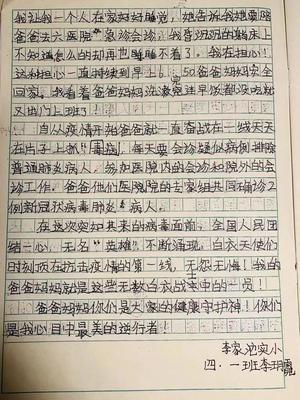 我让我一个人在家好好睡觉，她告诉我她要陪
爸爸去六医院“急诊会诊”，我昏沉沉的躺床上
不知道怎么的却再也睡不着了。我在担心！
这种担心一直持续到早上6：50爸爸妈妈安全
回家，我看着爸爸妈妈洗漱完连早饭都没吃就
又出门上班了！
自从疫情开始爸爸就一直奋战在一线天天
在片子上抓“毒”，每天要会诊疑似病例排除
普通肺炎病人。参加医院内的会诊和院外的会
诊工作，爸爸他们医院的专家组共同确诊2
例新冠状病毒肺炎病人。
在这次突如其来的病毒面前，全国人民团
结一心，无名“英雄”不断涌现，白衣天使们
时刻顶在抗击疫情的第一线，无怨无悔！我的
爸爸妈妈就是这些无数白衣战士中的一员！
爸爸妈妈你们是大家的健康守护神！你们
是我心目中最美的逆行者！
李家沱实小
四．一班李玥霓